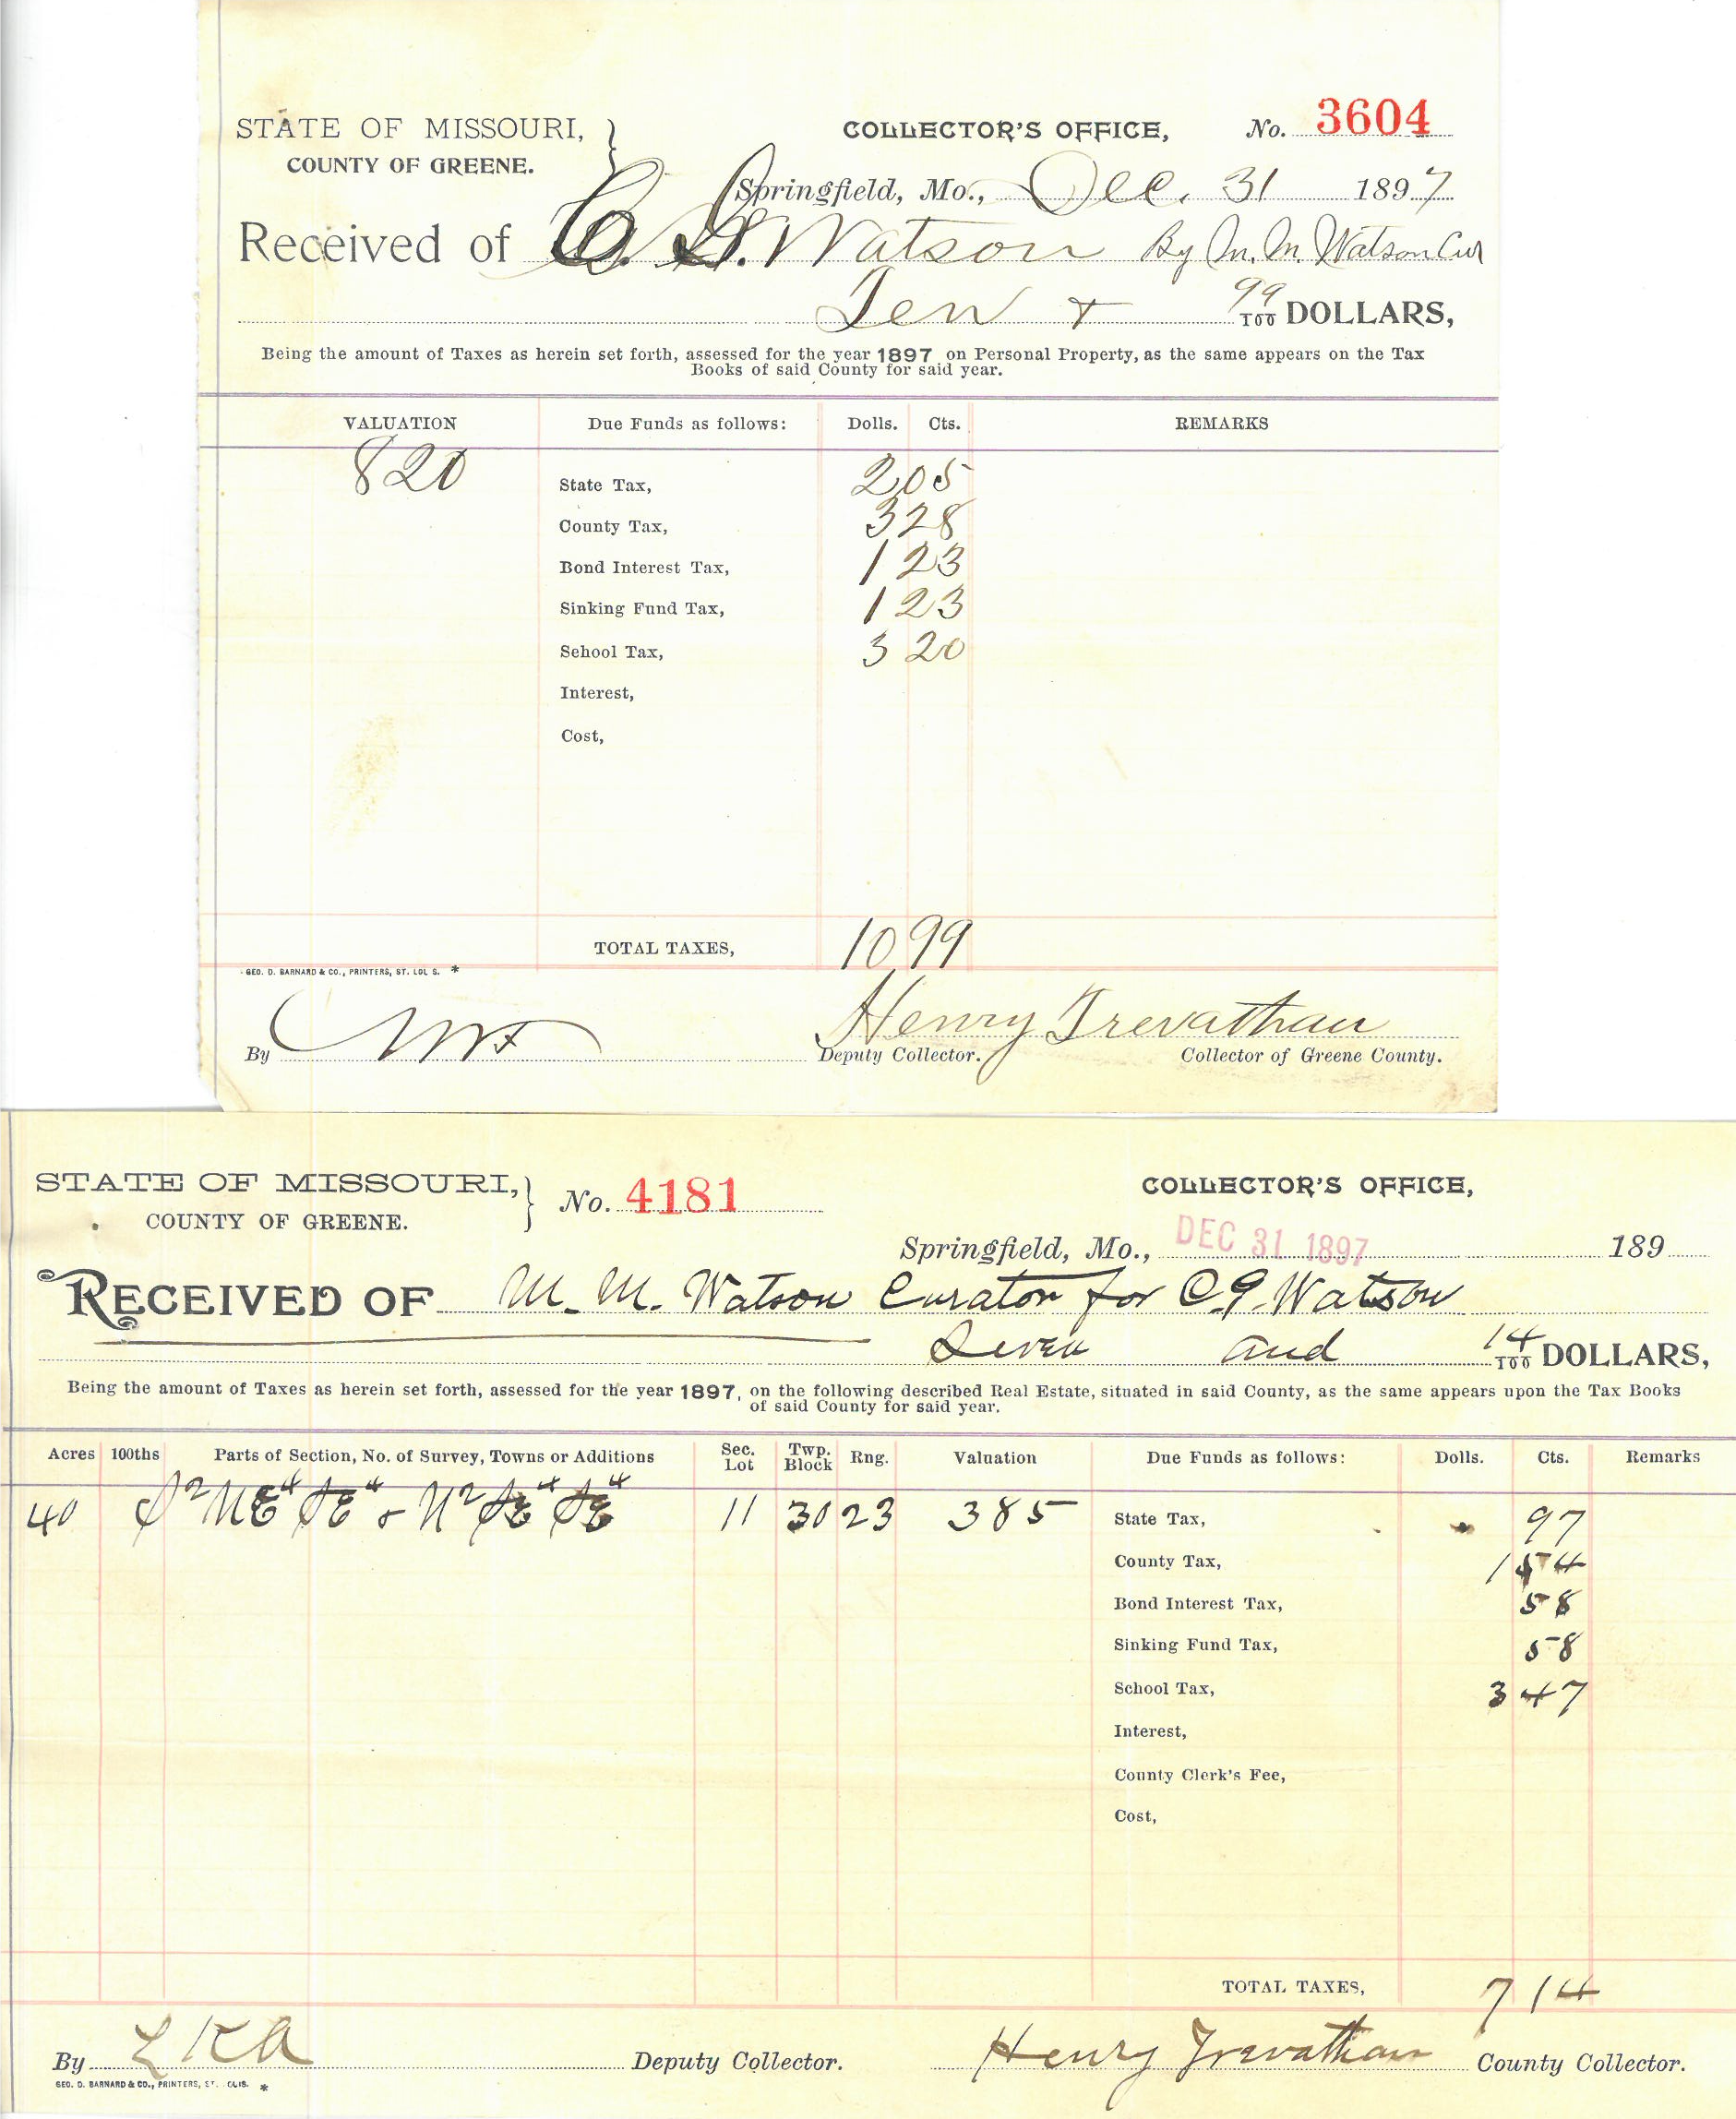 STATE OF MISSOURI, } COLLECTOR'S OFFICE, No. 3604
COUNTY OF GREENE.
Springfield, Mo., Dec. 31 1897
Received of C. G. Watson By M. M. Watson Cur
Ten + 99/100 DOLLARS,
Being the amount of Taxes as herein set forth, assessed for the year 1897 on Personal Property, as the same appears on the Tax
Books of said County for said year.
VALUATION Due Funds as follows: Dolls. Cts. REMARKS
820 State Tax, 2 05
County Tax, 3 28
Bond Interest Tax, 1 23
Sinking Fund Tax, 1 23
School Tax, 3 20
Interest,
Cost,
TOTAL TAXES, 10 99
GEO. D. BARNARD & CO., PRINTERS, ST. LOU S. *
Henry Trevathan
By Deputy Collector. Collector of Greene County.
STATE OF MISSOURI, } No. 4181 COLLECTOR'S OFFICE,
COUNTY OF GREENE.
Springfield, Mo., DEC 31 1897 189
RECEIVED OF M. M. Watson Curator for C. G. Watson
Seven and 14/100 DOLLARS,
Being the amount of Taxes as herein set forth, assessed for the year 1897, on the following described Real Estate, situated in said County, as the same appears upon the Tax Books
of said County for said year.
Acres 100ths Parts of Section, No. of Survey, Towns or Additions Sec. Lot Twp. Block Rng. Valuation Due Funds as follows: Dolls. Cts. Remarks
40 S2 NE4 SE4 & N2 SE4 SE4 11 30 23 385 State Tax, 97
County Tax, 1 54
Bond Interest Tax, 58
Sinking Fund Tax, 58
School Tax, 3 47
Interest,
County Clerk's Fee,
Cost,
TOTAL TAXES, 7 14
By LKA Deputy Collector. Henry Trevathan County Collector.
GEO. D. BARNARD & CO., PRINTERS, ST. OUIS. *